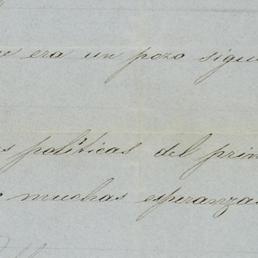 era un pozo sigue
políticas del prin
muchas esperanzas